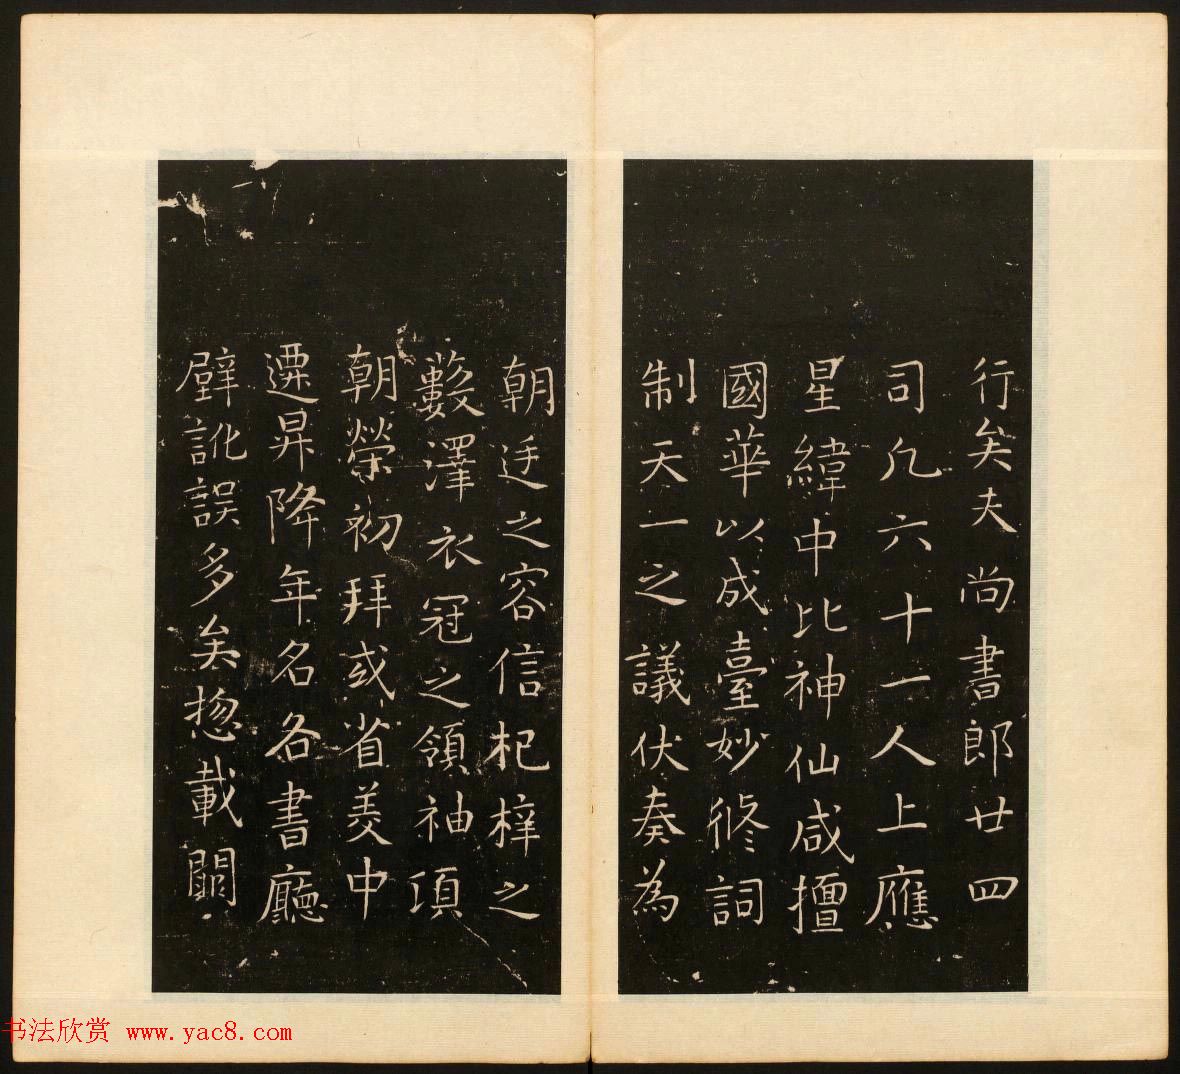 行矣夫尚書郎廿四
司凡六十一人上應
星緯中比神仙咸擅
國華以成臺妙修詞
制天一之議伏奏為
朝廷之容信杞梓之
藪澤衣冠之領袖頃
朝榮初拜或省美中
遷昇降年名各書廳
壁訛誤多矣揔載闕
书法欣赏 www.yac8.com